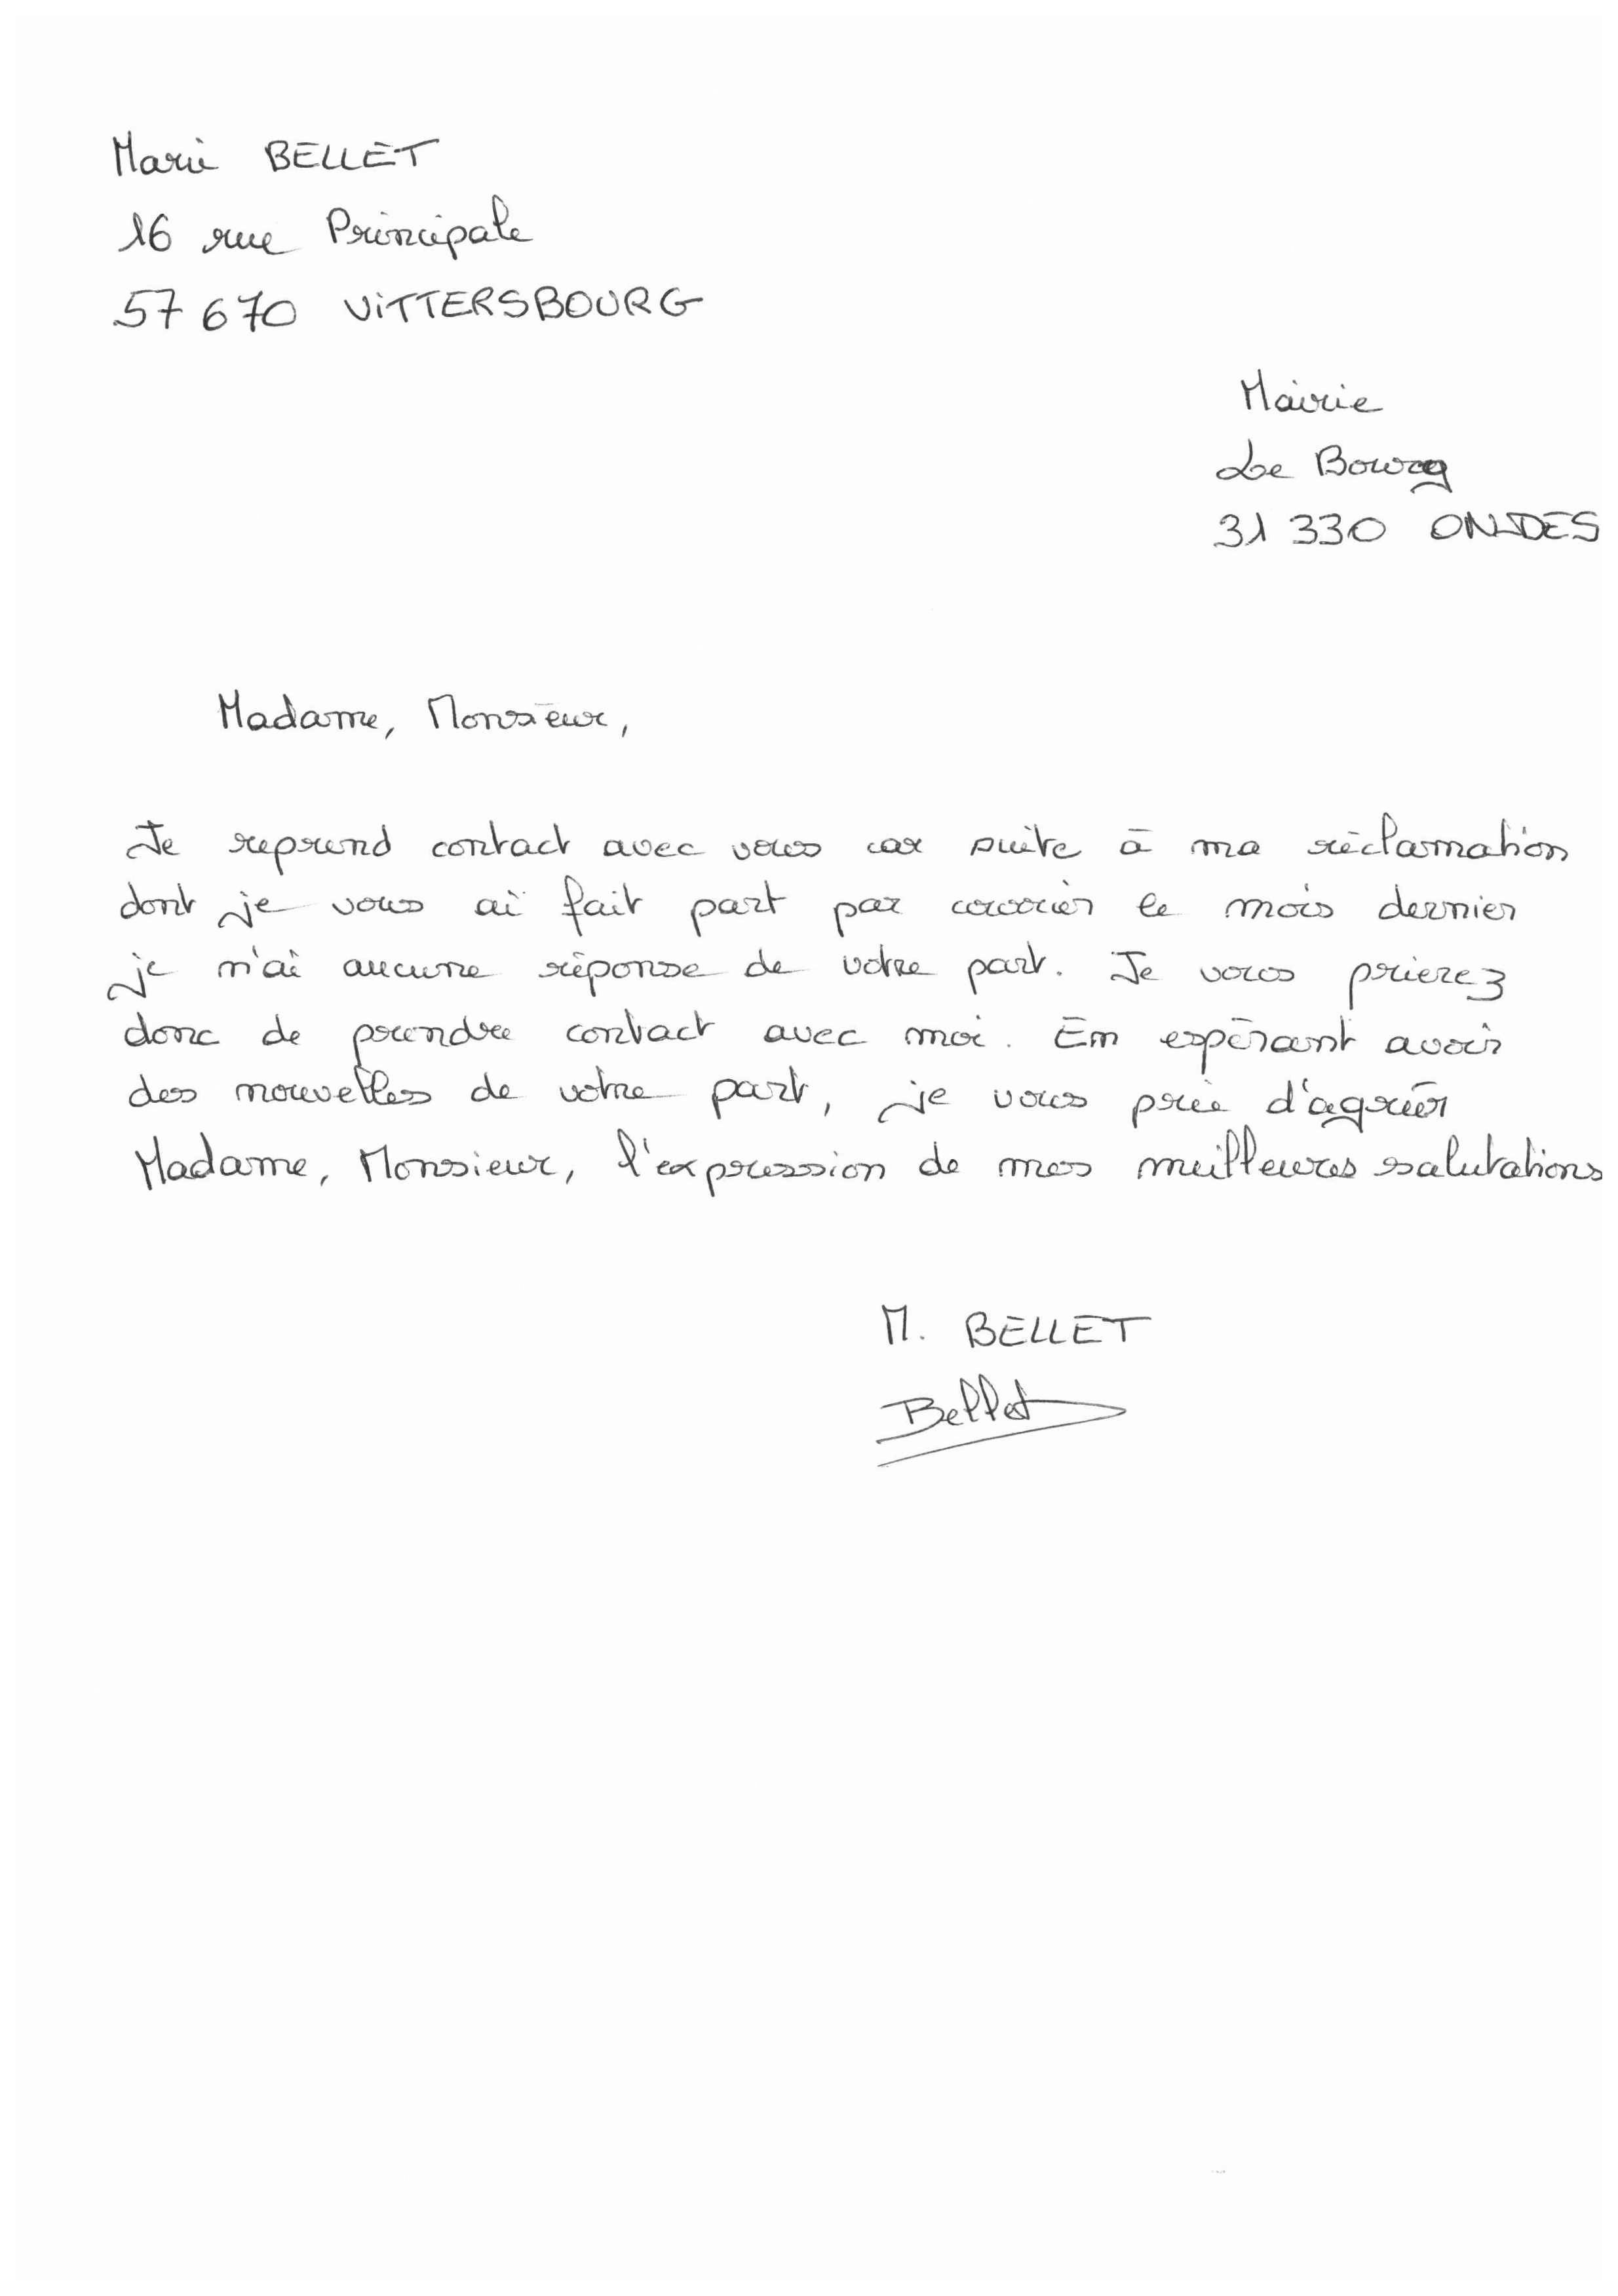 Marie BELLET
16 rue Principale
57 670 ViTTERSBOURG
Mairie
Le Bourg
31 330 ONDES
Madame, Monsieur,
Je reprend contact avec vous car suite à ma réclamation
dont je vous ai fait part par courrier le mois dernier
je n'ai aucune réponse de votre part. Je vous prierez
donc de prendre contact avec moi. En espérant avoir
des nouvelles de votre part, je vous prie d'agréer
Madame, Monsieur, l'expression de mes meilleures salutations
M. BELLET
Bellet